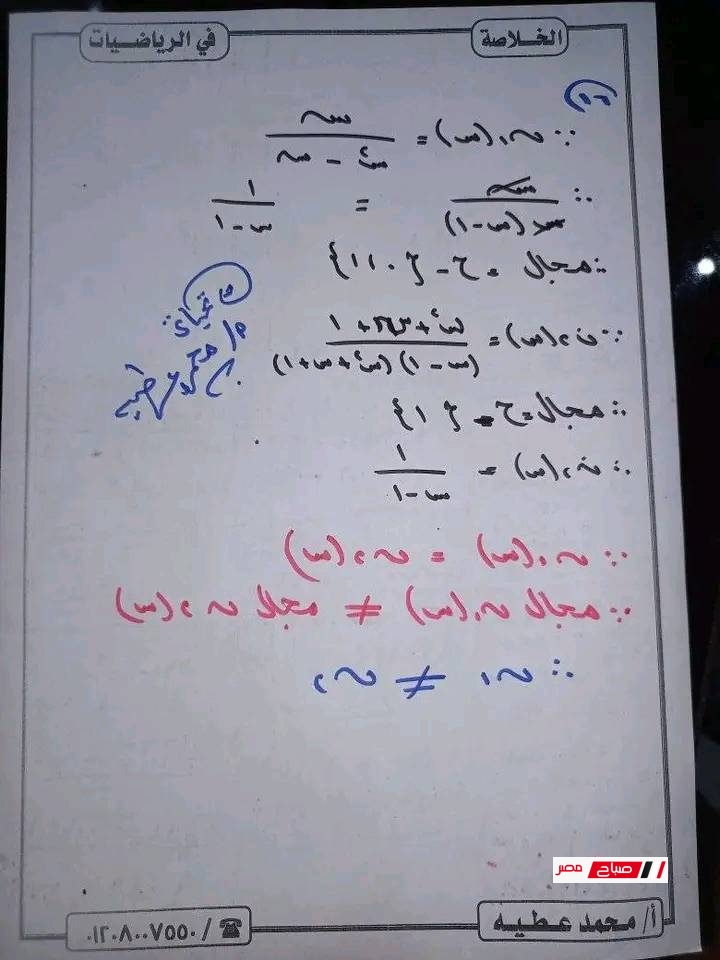 الخلاصة
في الرياضيات
∴ ن١(س) = س / (س² - س)
∴ س / س(س-١) = ١ / (س-١)
∴ مجال = ح - {١،٠}
∴ ن٢(س) = (س² + س + ١) / (س-١)(س²+س+١)
∴ مجال = ح - {١}
∴ ن٢(س) = ١ / (س-١)
∴ ن١(س) = ن٢(س)
∴ مجال ن١(س) ≠ مجال ن٢(س)
∴ ن١ ≠ ن٢
صباح مصر
أ/ محمد عطيه
☎ / ٠١٢٠٨٠٠٧٥٥٠